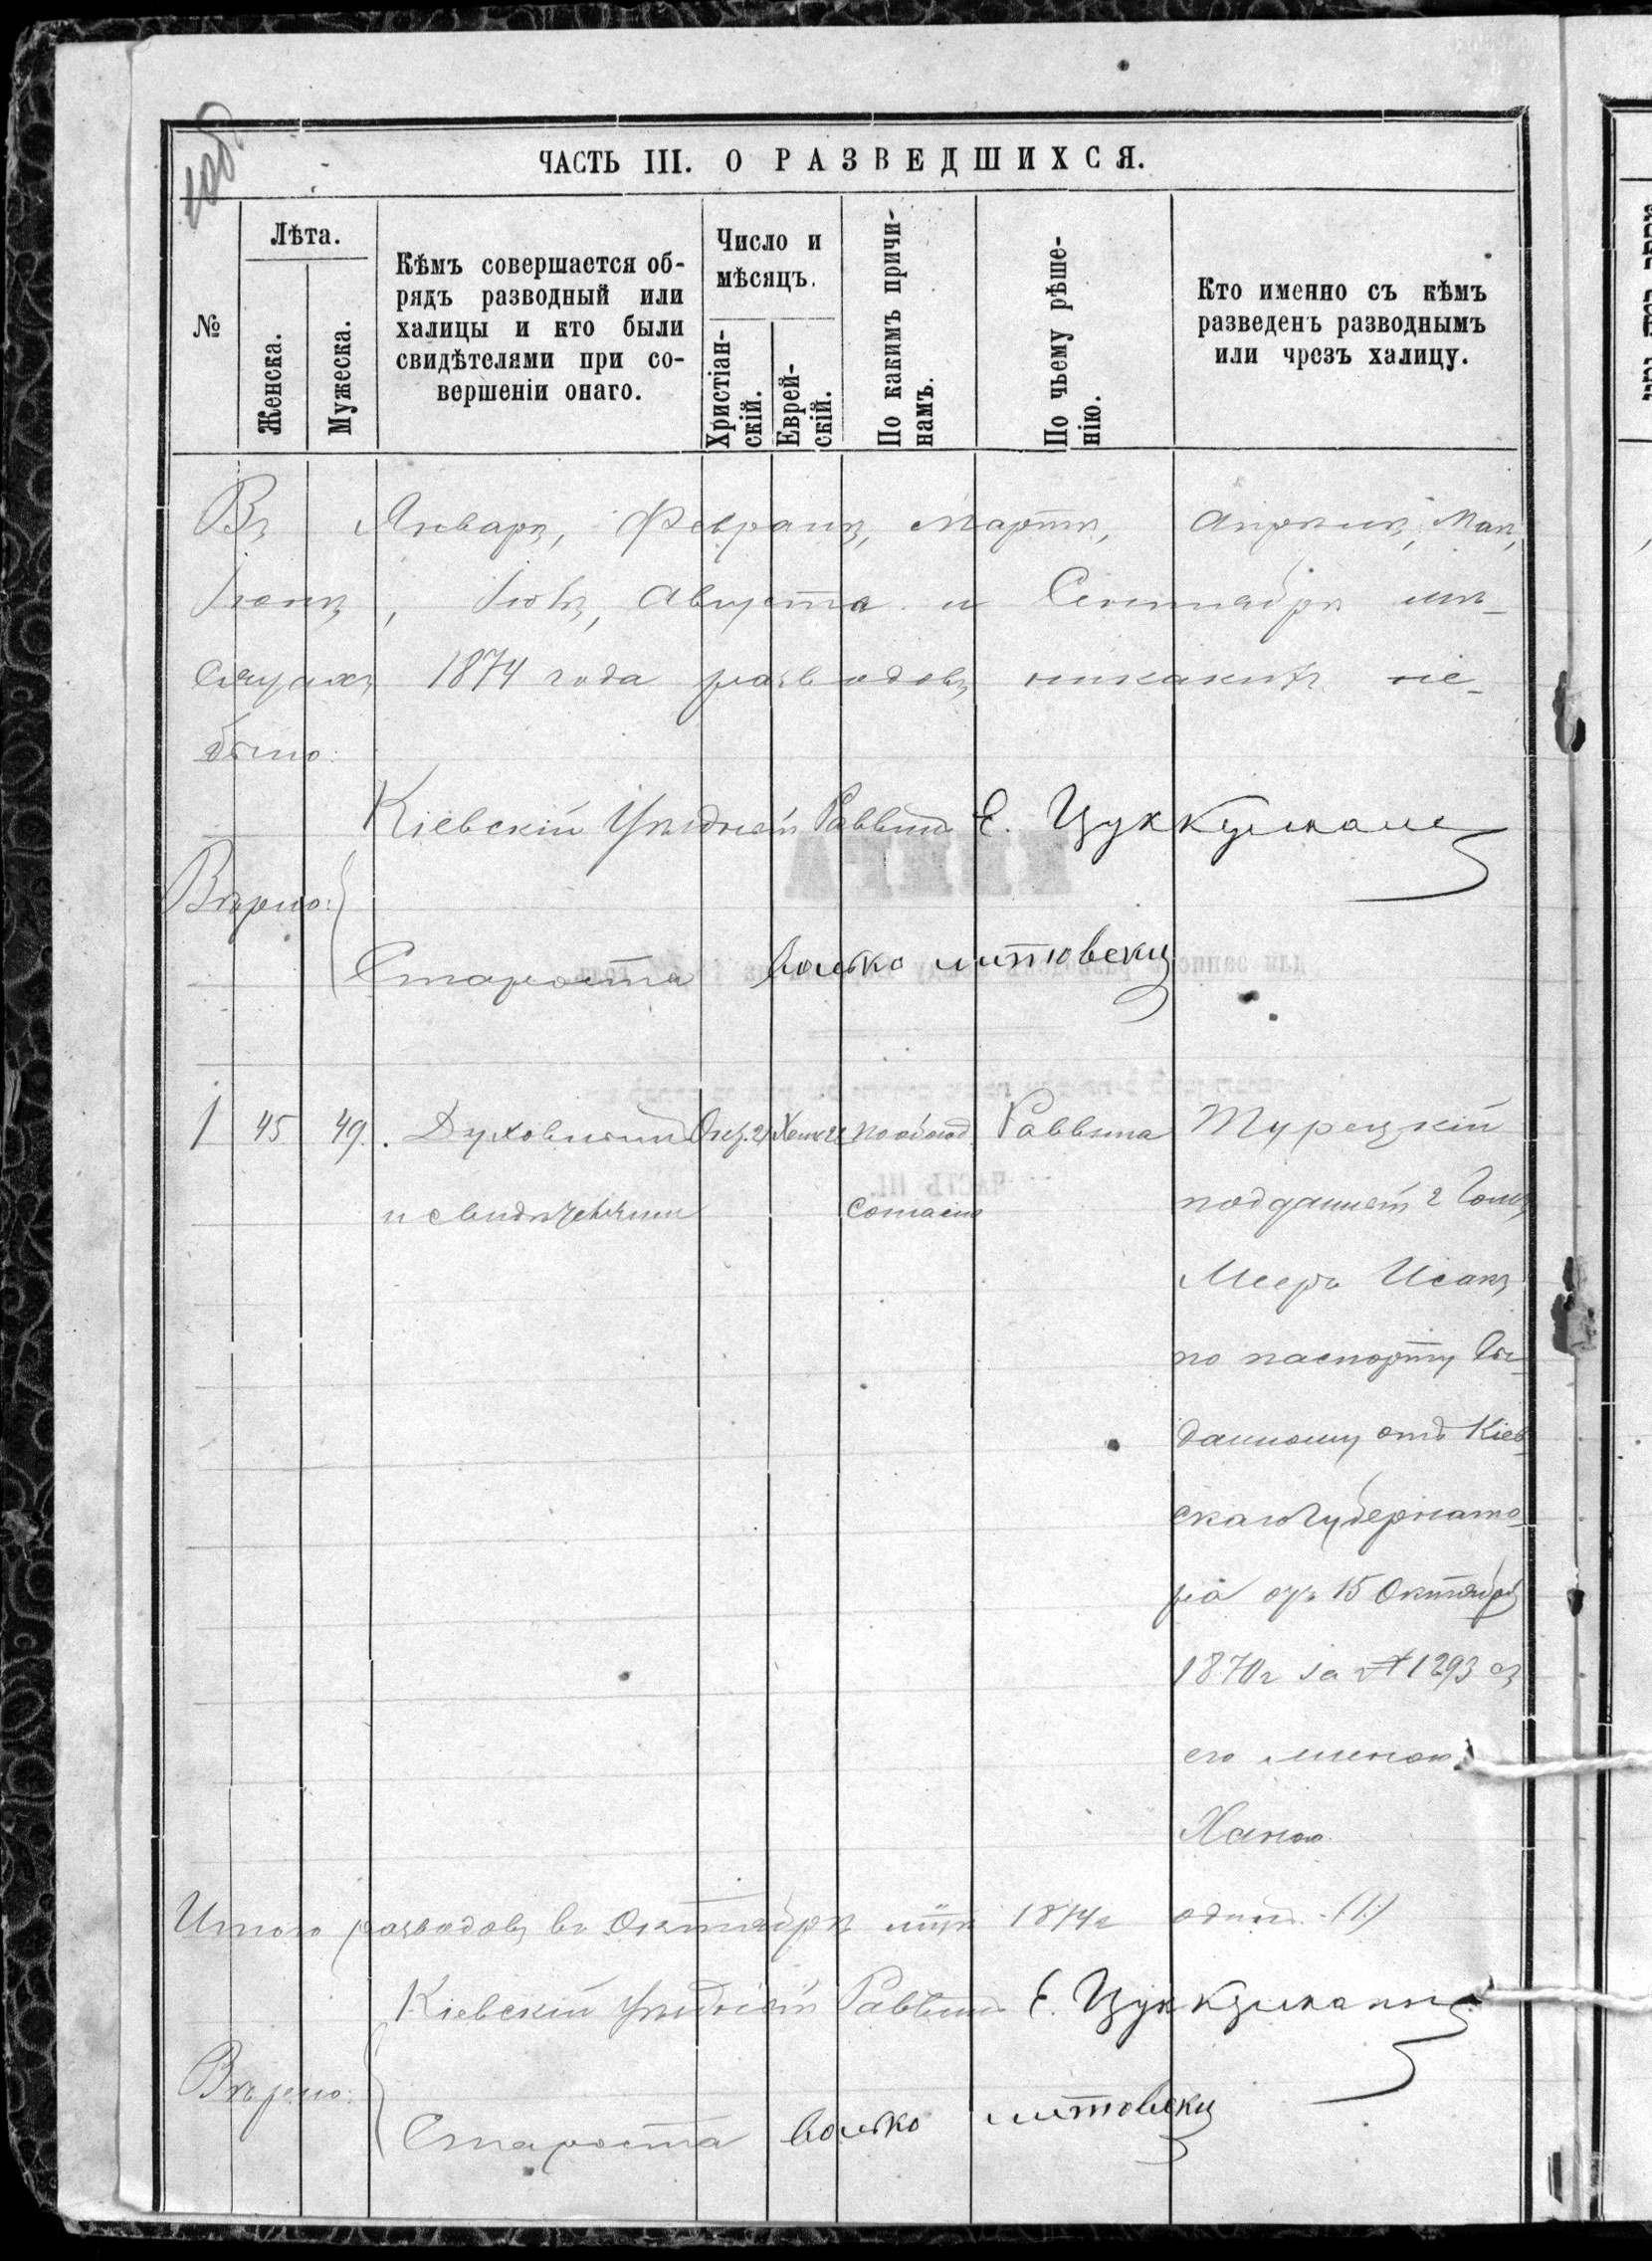 ЧАСТЬ III. О РАЗВЕДШИХСЯ.
№
Лѣта.
Женска.
Мужеска.
Кѣмъ совершается об-
рядъ разводный или
халицы и кто были
свидѣтелями при со-
вершеніи онаго.
Число и
мѣсяцъ.
Христіан-
скій.
Еврей-
скій.
По какимъ причи-
намъ.
По чьему рѣше-
нію.
Кто именно съ кѣмъ
разведенъ разводнымъ
или чрезъ халицу.
Въ Январѣ, Февралѣ, Мартѣ, Апрѣлѣ, Маѣ,
Іюнѣ, Іюлѣ, Августа и Сентябрѣ мѣ-
сяцахъ 1874 года разводовъ никакихъ не-
было:
Кіевскій Уѣздный Раввинъ Е. Цуккерманъ
Вѣрно:
Староста Волько Литовски
1 45 49. Духовный Раввина Турецкій
и свидѣтелями согласію подданный
Мееръ Исакъ
по паспорту Вы-
данному отъ Кіев
скаго Губернато-
ра отъ 15 Октября
1870 г за № 1293 съ
его женою
Ханою
Итого разводовъ въ Октябрѣ мцѣ 1874 г одинъ (1.)
Кіевскій Уѣздный Раввинъ Е. Цуккерманъ
Вѣрно:
Староста Волько Литовски